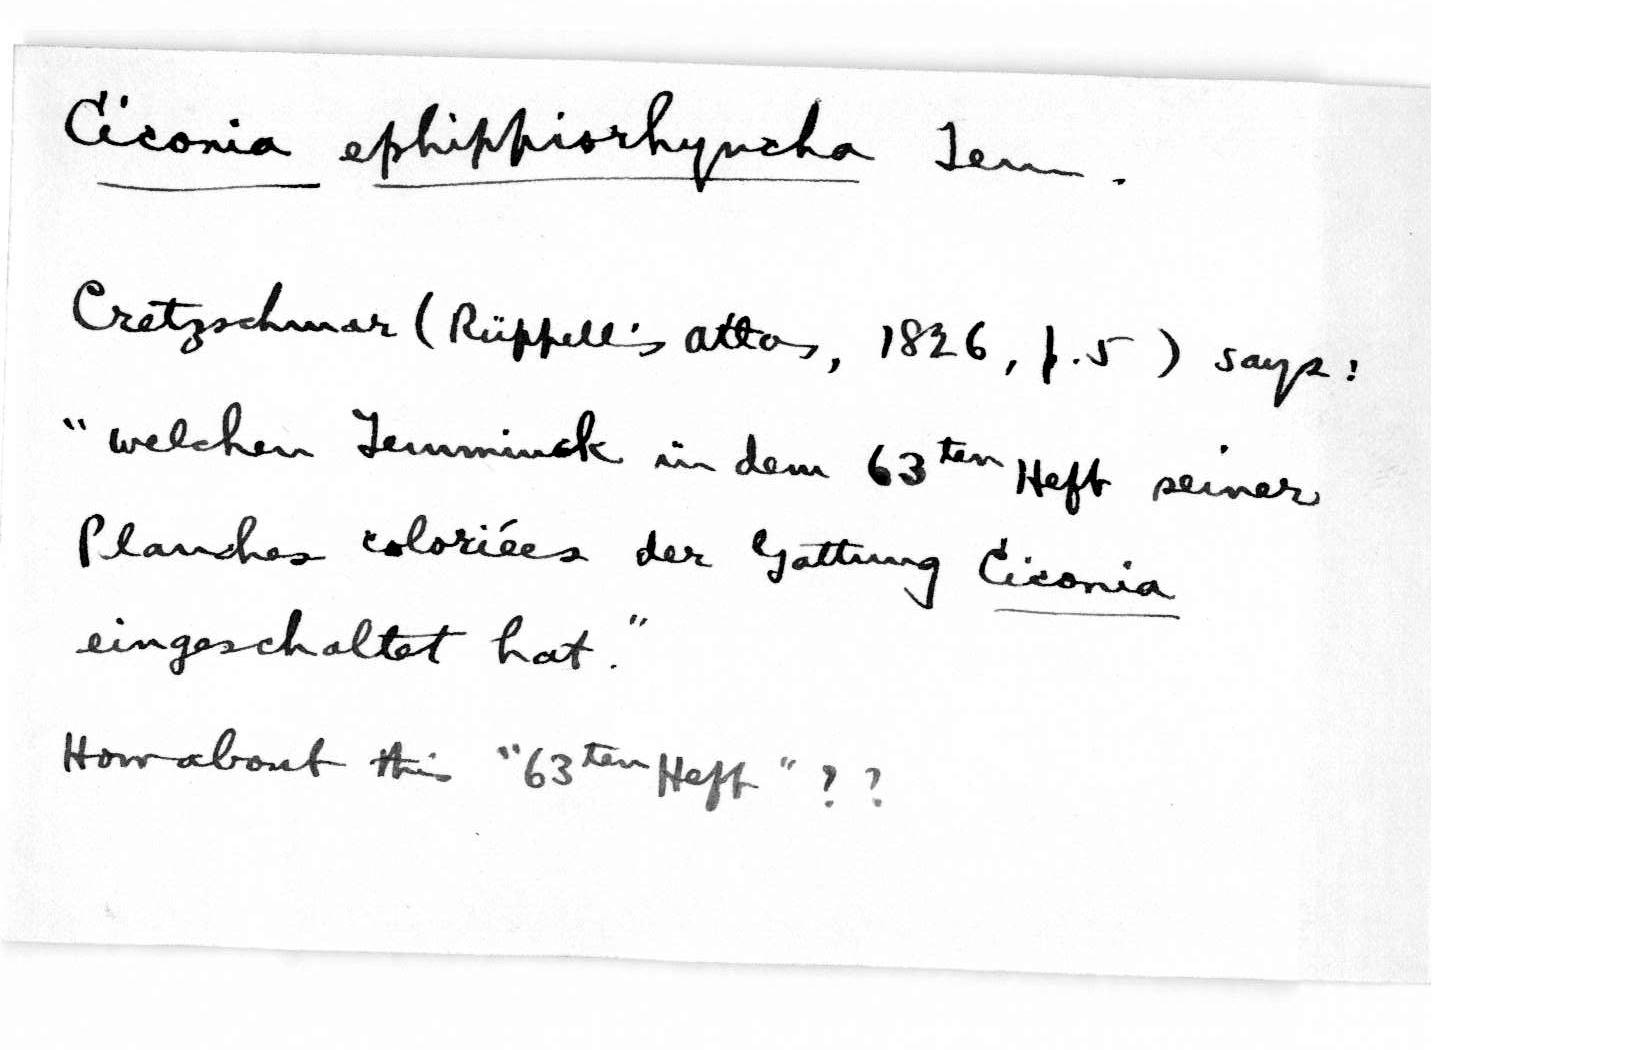 Ciconia ephippiorhyncha Tem.
Cretzschmar (Rüppell's Atlas, 1826, p. 5) says:
"welchen Temminck in dem 63ten Heft seiner
Planches coloriées der Gattung Ciconia
eingeschaltet hat."
How about this "63ten Heft" ??